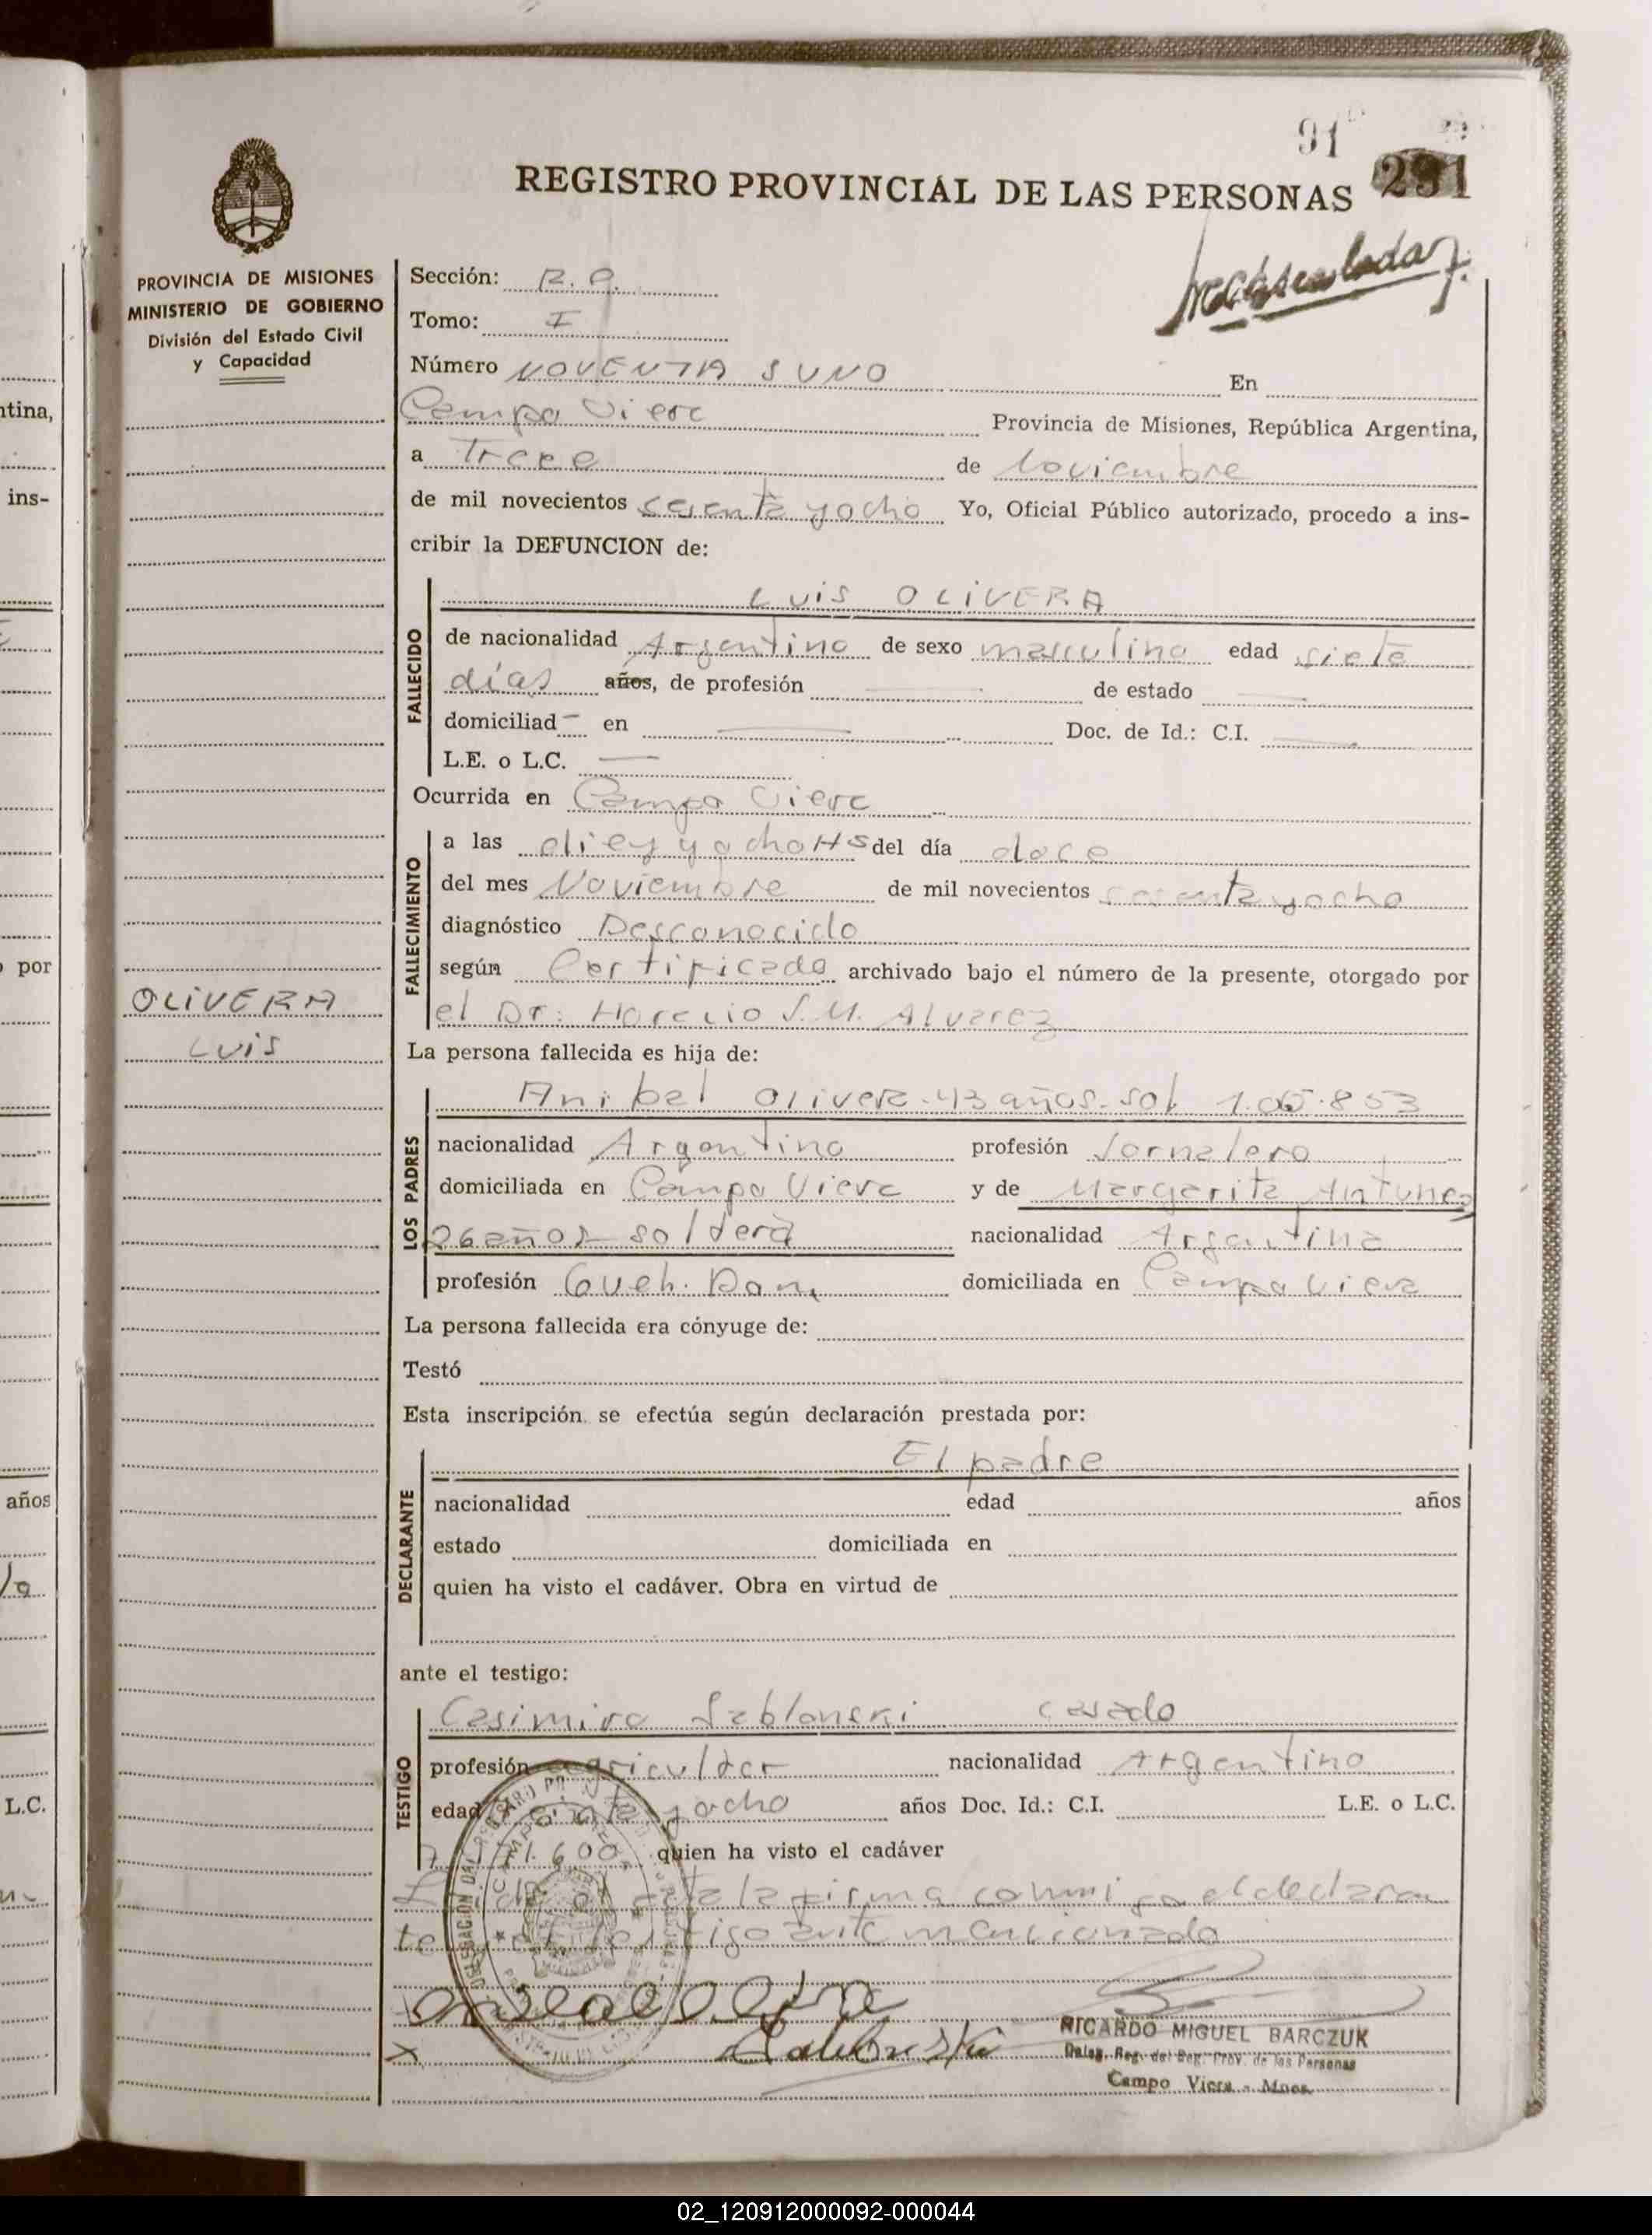 91
REGISTRO PROVINCIAL DE LAS PERSONAS 291
PROVINCIA DE MISIONES
MINISTERIO DE GOBIERNO
División del Estado Civil
y Capacidad
Sección:
Tomo: I
Número NOVENTA Y UNO En
Campo Viera Provincia de Misiones, República Argentina,
a Trece de Noviembre
de mil novecientos sesenta y ocho Yo, Oficial Público autorizado, procedo a ins-
cribir la DEFUNCION de:
LUIS OLIVERA
FALLECIDO
de nacionalidad Argentino de sexo masculino edad siete
días años, de profesión — de estado —
domiciliad — en — Doc. de Id.: C.I. —
L.E. o L.C. —
Ocurrida en Campo Viera
FALLECIMIENTO
a las diez y ocho HS del día doce
del mes Noviembre de mil novecientos sesenta y ocho
diagnóstico Desconocido
según Certificado archivado bajo el número de la presente, otorgado por
el Dr: Horacio S.M. Alvarez
OLIVERA
LUIS
La persona fallecida es hija de:
LOS PADRES
Anibal Olivera - 43 años - sol
nacionalidad Argentino profesión Jornalero
domiciliada en Campo Viera y de Margarita Antunez
26 años - soltera nacionalidad Argentina
profesión Queh. Dom. domiciliada en Campo Viera
La persona fallecida era cónyuge de:
Testó
Esta inscripción se efectúa según declaración prestada por:
DECLARANTE
El padre
nacionalidad edad años
estado domiciliada en
quien ha visto el cadáver. Obra en virtud de
ante el testigo:
TESTIGO
Casimiro Sablonski casado
profesión agricultor nacionalidad Argentino
edad y ocho años Doc. Id.: C.I. L.E. o L.C.
600 quien ha visto el cadáver
acta la firma conmigo el declaran
te y el testigo ante mencionado
RICARDO MIGUEL BARCZUK
Deleg. Reg. del Reg. Prov. de las Personas
Campo Viera - Mnes.
tina,
ins-
por
años
L.C.
02_120912000092-000044